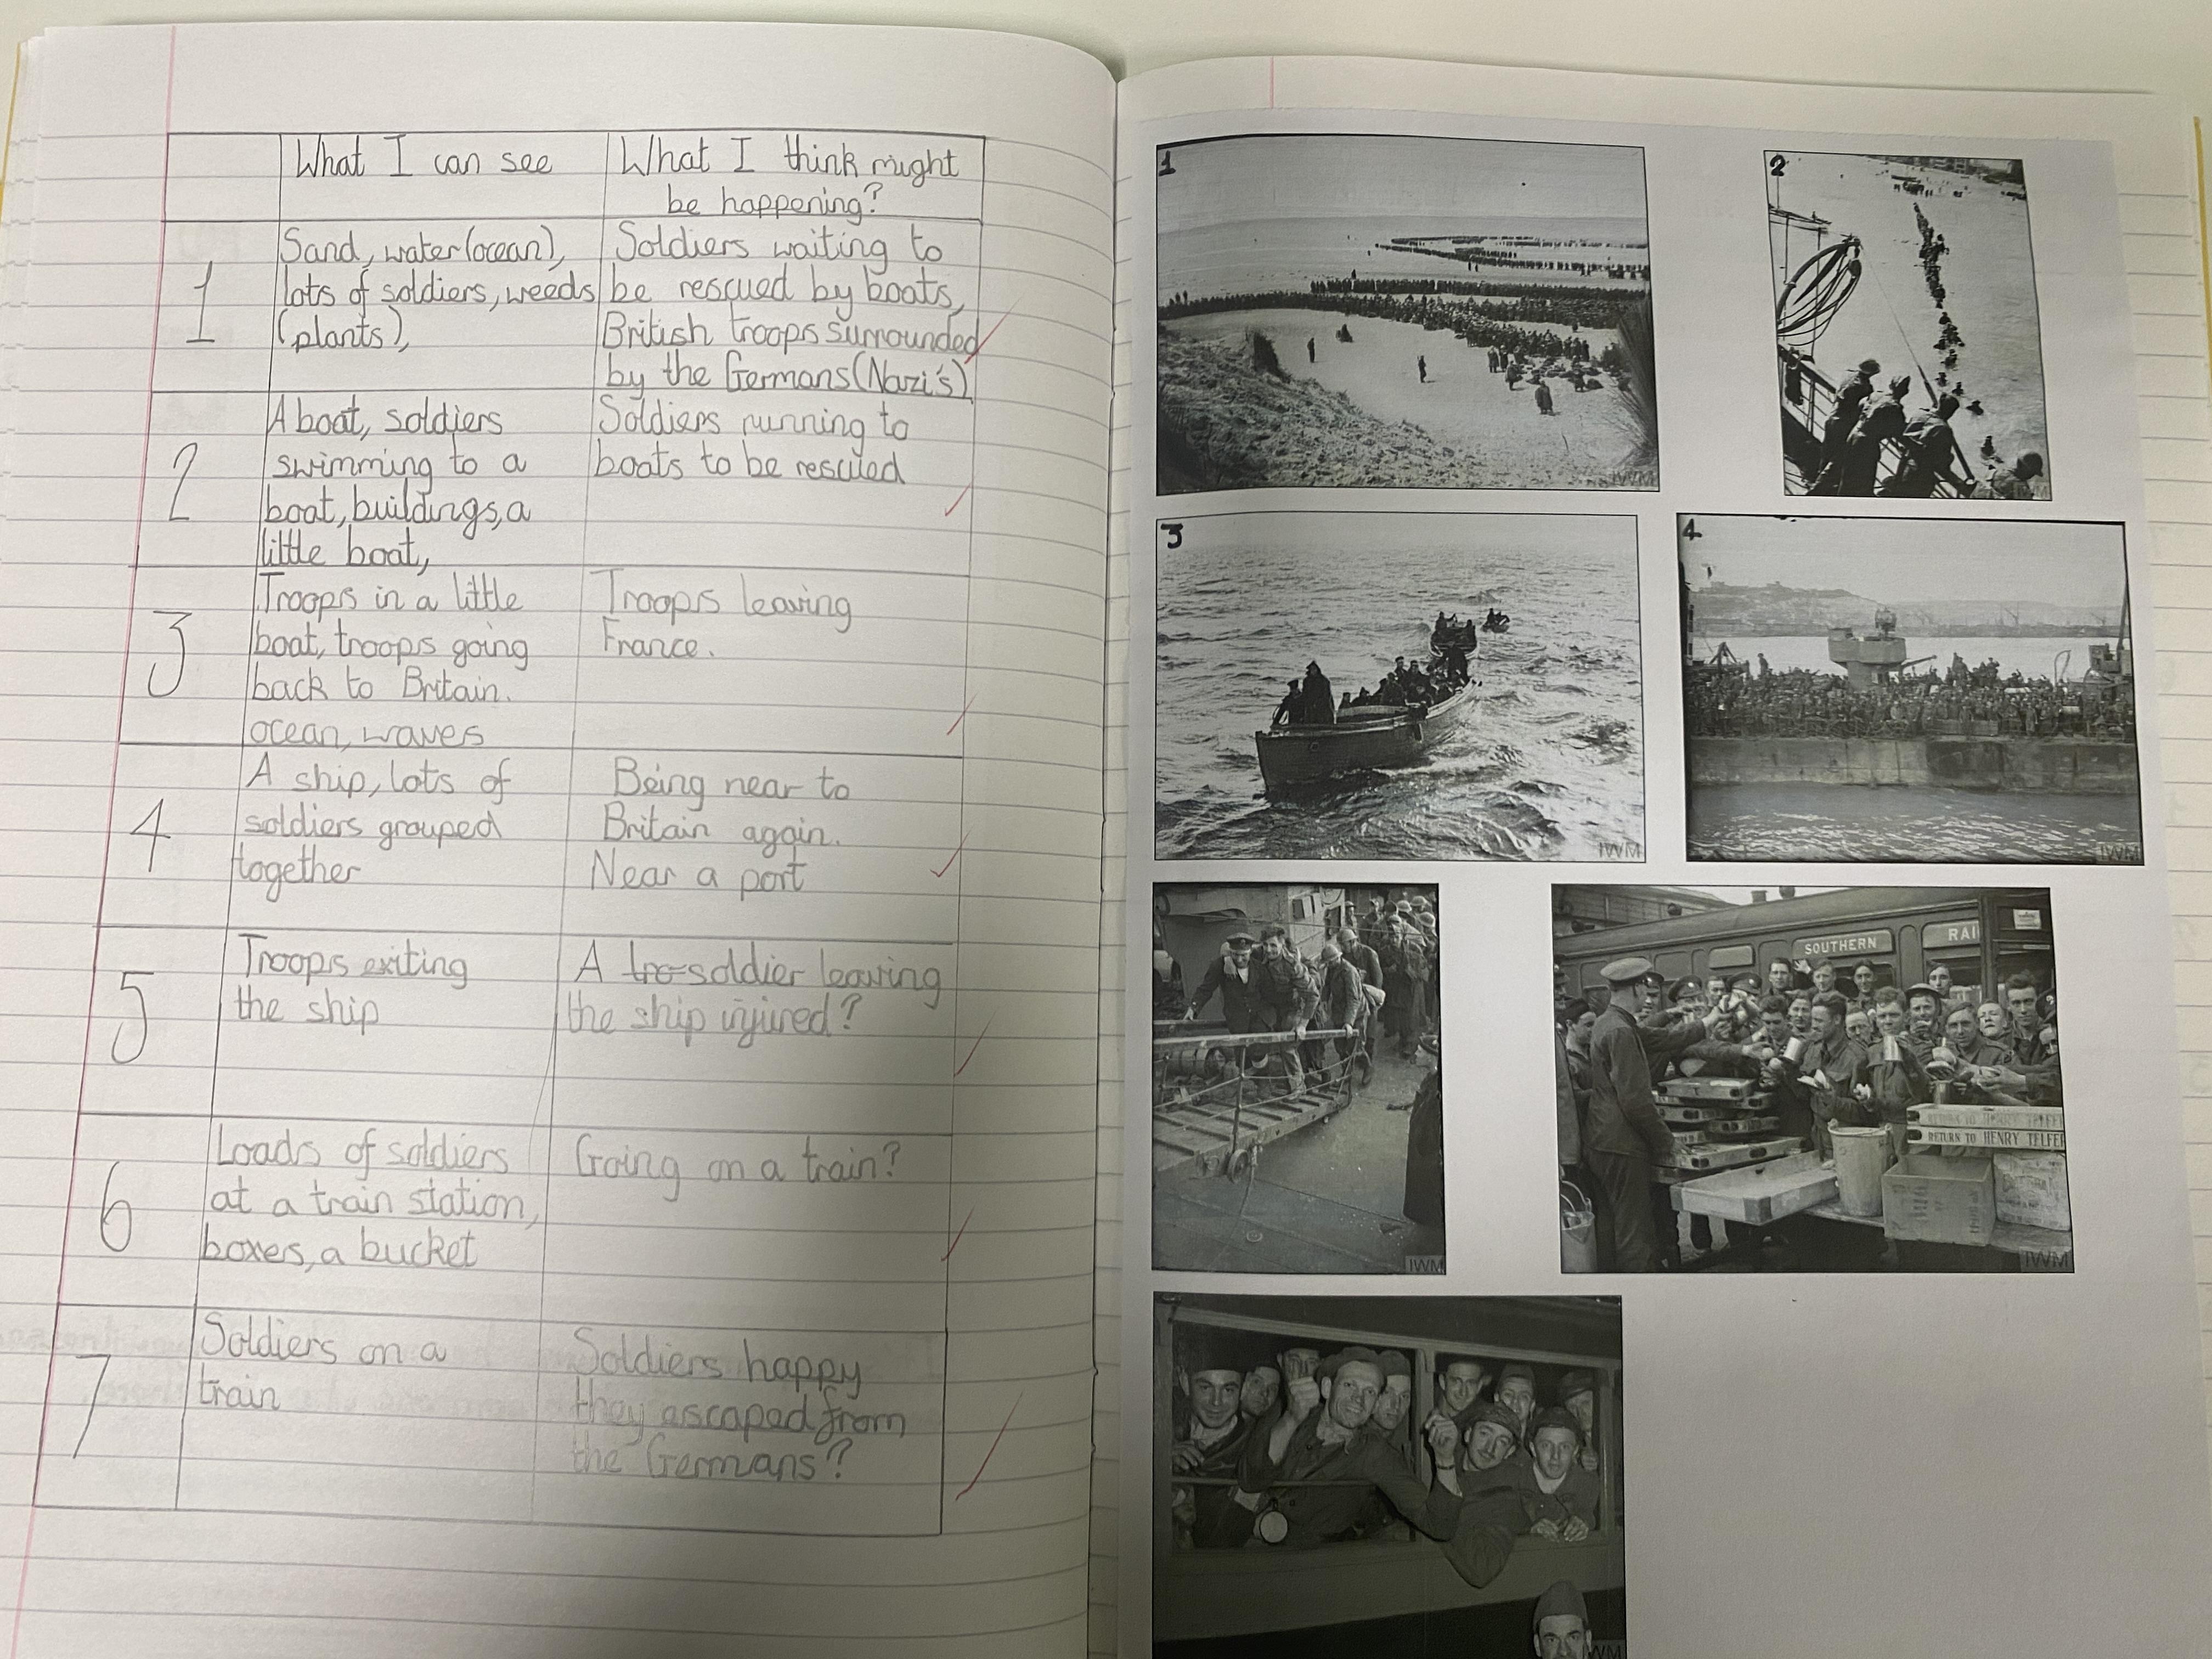 What I can see
What I think might
be happening?
1
Sand, water (ocean),
lots of soldiers, weeds
(plants),
Soldiers waiting to
be rescued by boats,
British troops surrounded
by the Germans (Nazi's)
2
A boat, soldiers
swimming to a
boat, buildings, a
little boat,
Soldiers running to
boats to be rescued
3
Troops in a little
boat, troops going
back to Britain.
ocean, waves
Troops leaving
France.
4
A ship, lots of
soldiers grouped
together
Being near to
Britain again.
Near a port
5
Troops exiting
the ship
A tro soldier leaving
the ship injured?
6
Loads of soldiers
at a train station,
boxes, a bucket
Going on a train?
7
Soldiers on a
train
Soldiers happy
they escaped from
the Germans?
1
IWM
2
IWM
3
IWM
4
IWM
IWM
SOUTHERN
RAI
RETURN TO HENRY TELFE
RETURN TO HENRY TELFE
IWM
IWM